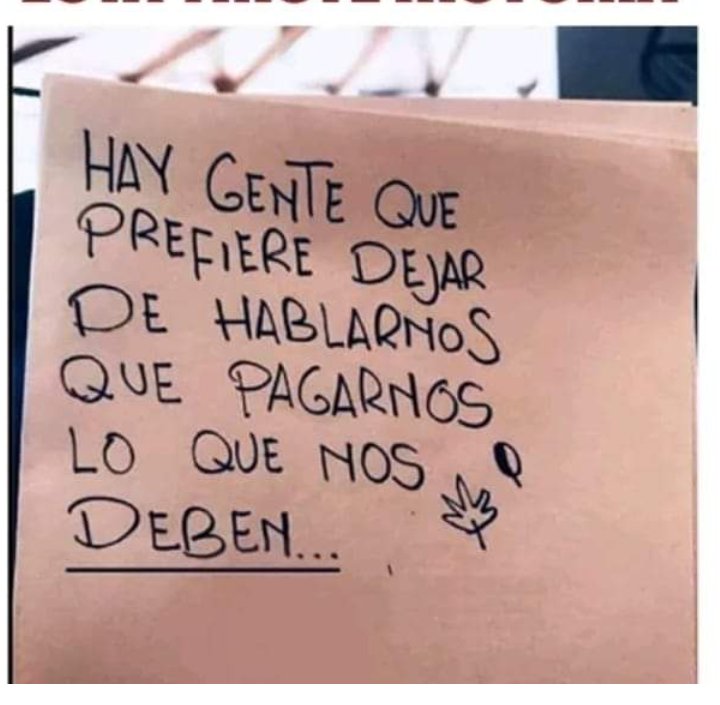 HAY GENTE QUE
PREFIERE DEJAR
DE HABLARNOS
QUE PAGARNOS
LO QUE NOS
DEBEN...